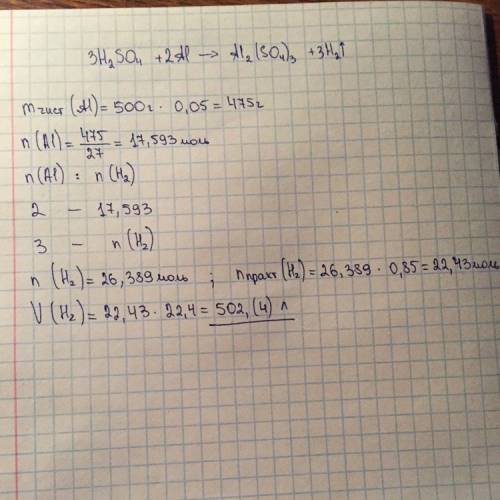 3H₂SO₄ + 2Al → Al₂(SO₄)₃ + 3H₂↑
m чист (Al) = 500г · 0,05 = 475г
n(Al) = 475/27 = 17,593 моль
n(Al) : n(H₂)
2 – 17,593
3 – n(H₂)
n(H₂) = 26,389 моль ; n практ (H₂) = 26,389 · 0,85 = 22,43 моль
V(H₂) = 22,43 · 22,4 = 502,(4) л